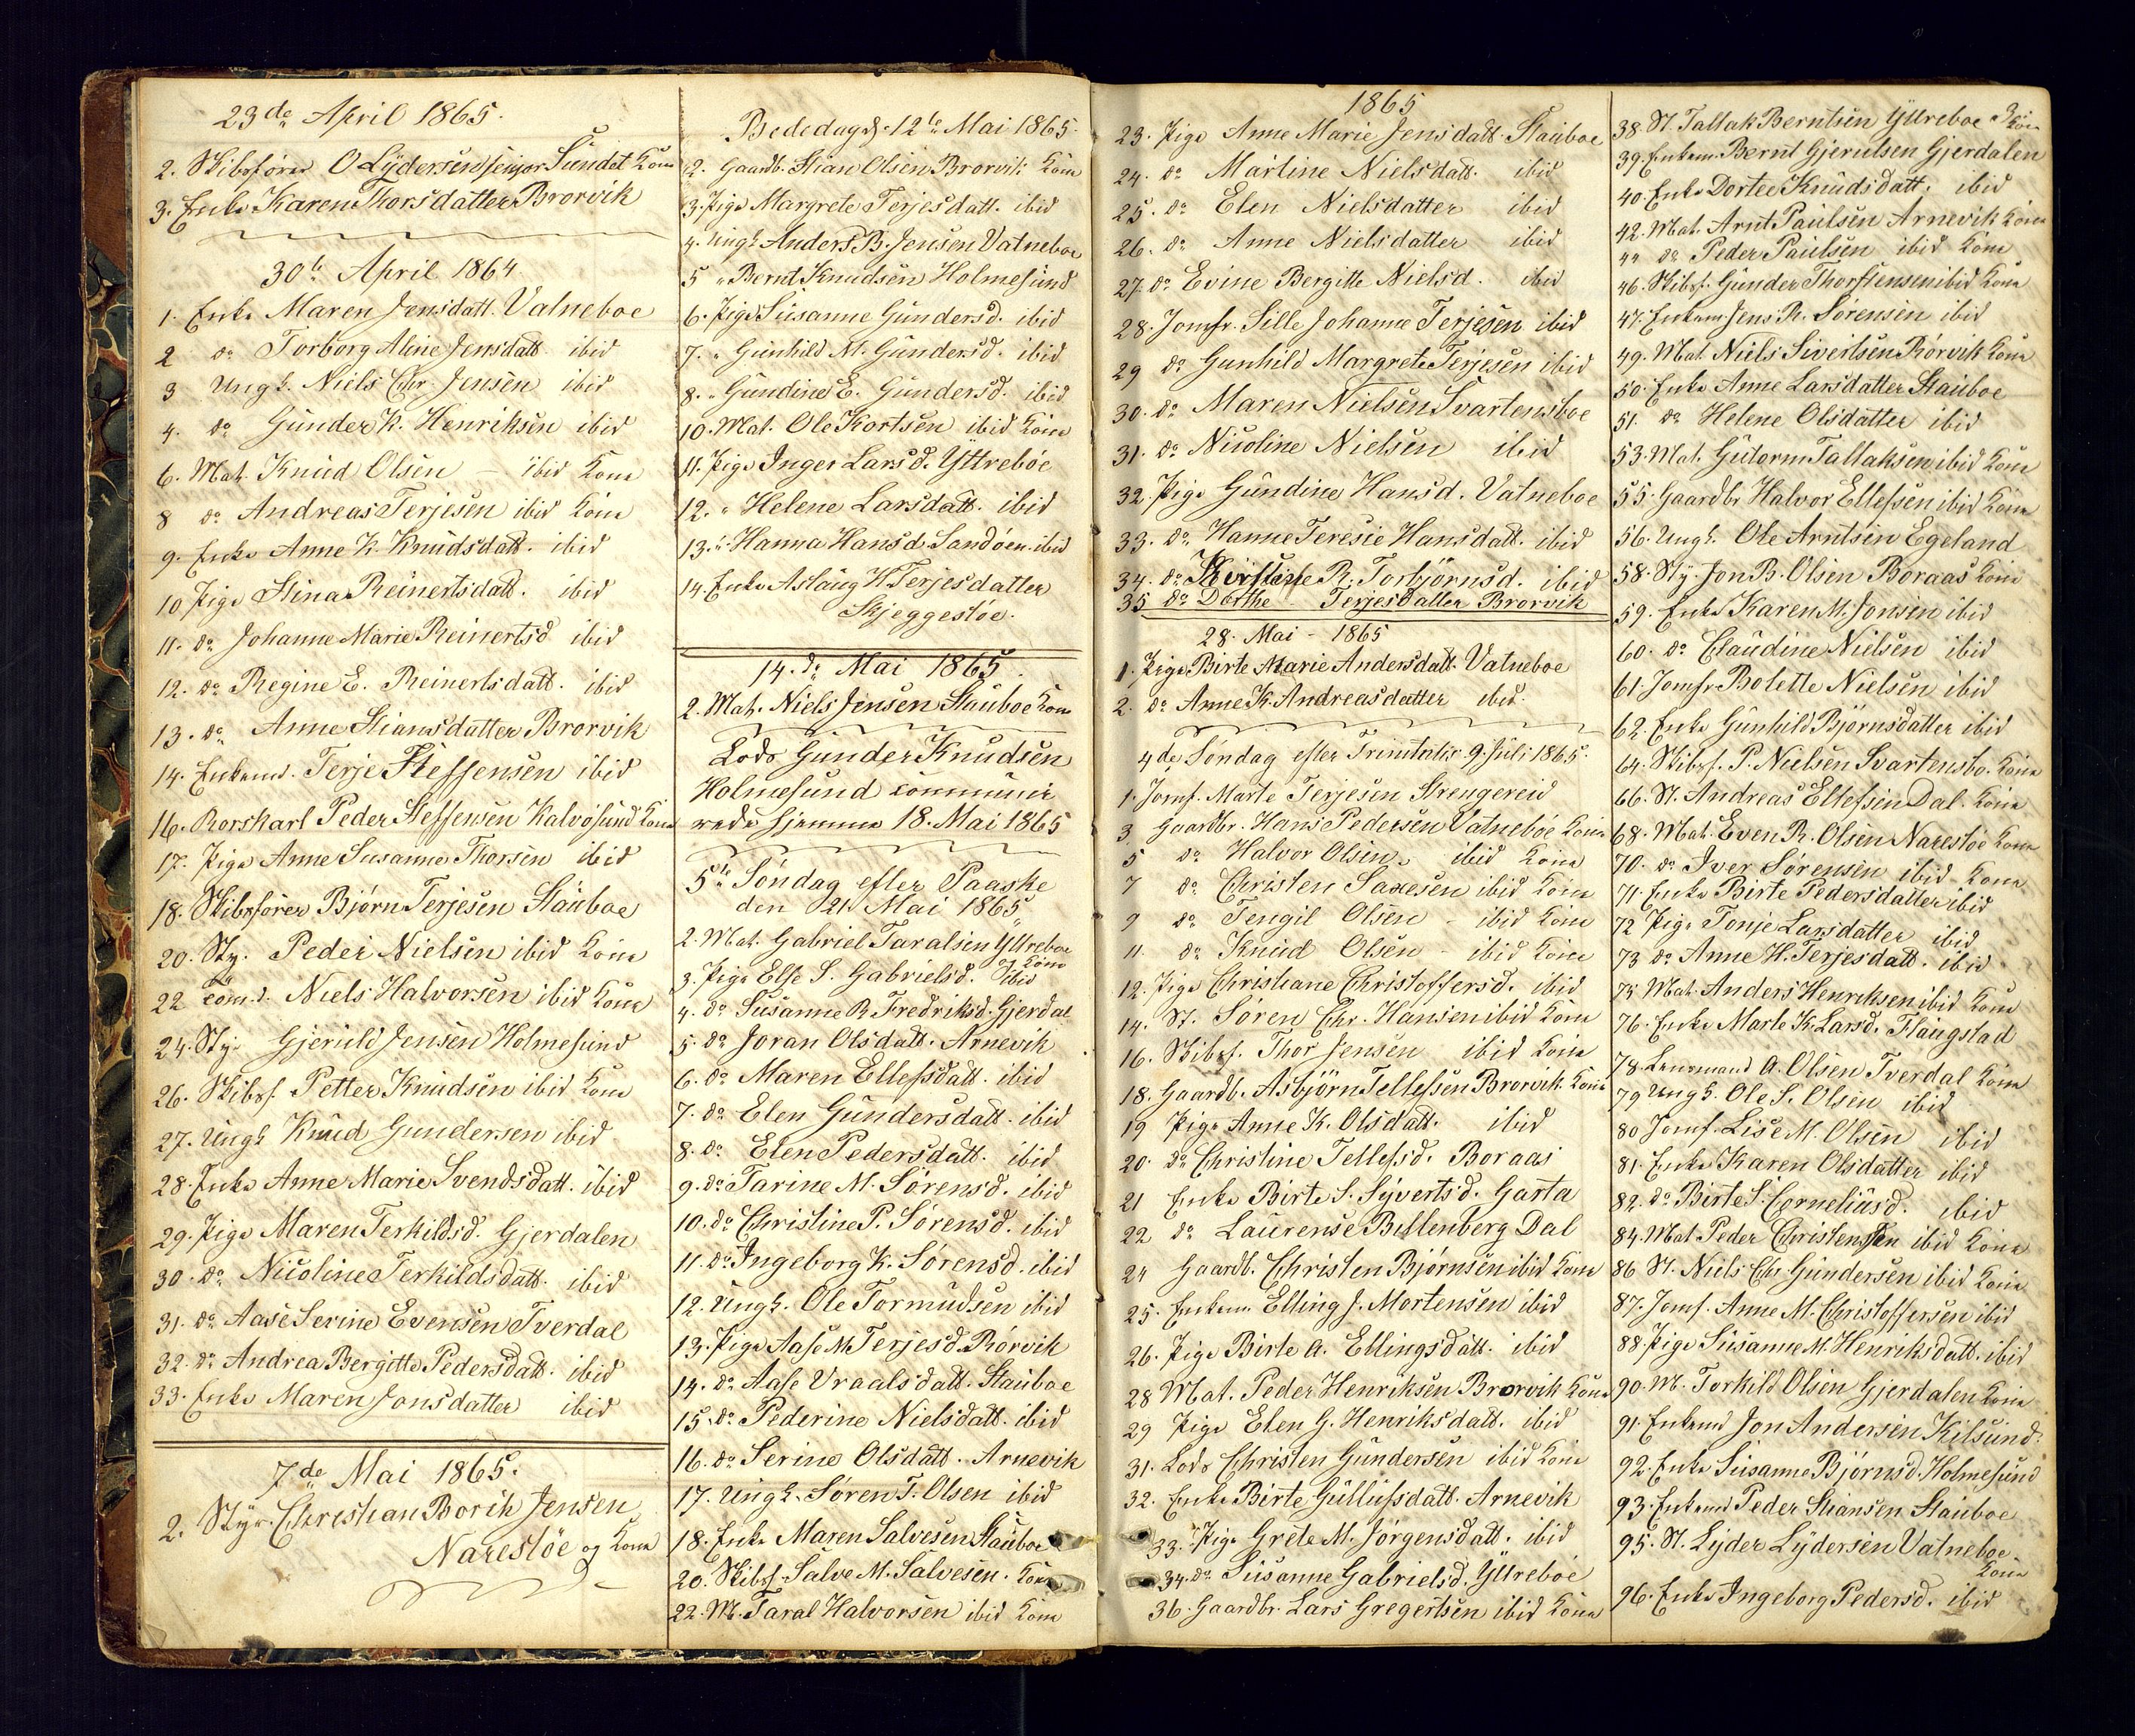 23de April 1865.
2. Skibsfører O Lydersen senjor Sundet Kona
3. Enke Karen Thorsdatter Brorvik
30te April 1864
1. Enke Maren Jensdatt. Vatneboe
2 do Torborg Aline Jensdatt. ibid
3 Ungk. Niels Chr. Jensen ibid
4. do Gunder K. Henriksen ibid
6. Mat. Knud Olsen – ibid Kona
8 do Andreas Terjesen ibid Kona
9. Enke Anne K. Knudsdatt. ibid
10. Pige Stina Reinertsdatt. ibid
11. do Johanne Marie Reinertsd ibid
12. do Regine E. Reinertsdatt. ibid
13. do Anne Stiansdatter Brorvik
14. Enkemd. Terje Steffensen ibid
16. Rorskarl Peder Steffensen Kalvøsund Kona
17. Pige Anne Susanne Thorsen ibid
18. Skibsfører Bjørn Terjesen Stauboe
20. Sty. Peder Nielsen ibid Kona
22 Niels Halvorsen ibid Kona
24. Sty. Gjeruld Jensen Holmesund
26. Skibsf. Petter Knudsen ibid Kona
27. Ungk Knud Gundersen ibid
28. Enke Anne Marie Svendsdatt. ibid
29. Pige Maren Terkildsd. Gjerdalen
30. do Nicoline Terkildsdatt. ibid
31. do Aase Serine Evensen Tverdal
32. do Andrea Bergitte Pedersdatt. ibid
33. Enke Maren Jonsdatter ibid
7de Mai 1865.
2. Styr. Christian Borik Jensen
Narestöe og Kona
Bededag d. 12te Mai 1865.
2. Gaardb. Stian Olsen Brorvik Kona
3. Pige Margrete Terjesdatt. ibid
4. Ungk Anders B. Jensen Vatneboe
5 " Bernt Knudsen Holmesund
6. Pige Susanne Gundersd. ibid
7. " Gunhild M. Gundersd. ibid
8. " Gundine E. Gundersd. ibid
10. Mat. Ole Kortsen ibid Kona
11. Pige Inger Larsd. Yttreböe
12. " Helene Larsdatt. ibid
13. " Hanna Hansd Sandöen ibid
14. Enke Aslaug H. Terjesdatter
Skjeggestöe.
14. de Mai 1865.
2. Mat. Niels Jensen Stauboe Kona
Lods Gunder Knudsen
Holmesund communice
rede hjemme 18. Mai 1865
5te Söndag efter Paaske
den 21 Mai 1865
2. Mat. Gabriel Taralsen Yttreboe
og Kona
3. Pige Else S. Gabrielsd. ibid
4. do Susanne R. Fredriksd. Gjerdal
5. do Joran Olsdatt. Arnevik
6. do Maren Ellefsdatt. ibid
7. do Elen Gundersdatt. ibid
8. do Elen Pedersdatt. ibid
9. do Tarine M. Sörensd. ibid
10. do Christine P. Sörensd. ibid
11. do Ingeborg K. Sörensd. ibid
12. Ungk. Ole Tormudsen ibid
13. Pige Aase M Terjesd. Rörvik
14. do Aase Vraalsdatt. Stauboe
15. do Pederine Nielsdatt. ibid
16. do Serine Olsdatt. Arnevik
17. Ungk. Sören T. Olsen ibid
18. Enke Maren Salvesen Stauboe
20. Skibsf. Salve M. Salvesen. Kona
22. M. Taral Halvorsen ibid Kona
1865
23. Pige Anne Marie Jensdatt. Stauboe
24. do Martine Nielsdatt. ibid
25. do Elen Nielsdatter ibid
26. do Anne Nielsdatter ibid
27. do Evine Bergitte Nielsd. ibid
28. Jomfr. Sille Johanne Terjesen ibid
29 do Gunhild Margrete Terjesen ibid
30. do Maren Nielsen Svartensboe
31. do Nicoline Nielsen ibid
32. Pige Gundine Hansd. Vatneboe
33. do Hanne Teresie Hansdatt. ibid
34. do Kirstine R. Torbjörnsd. ibid
35 do Dorthe – Terjesdatter Brorvik
28. Mai – 1865
1. Pige Birte Marie Andersdatt. Vatneboe
2. do Anne K. Andreasdatter ibid.
4de Söndag efter Trinitatis 9. Juli 1865.
1. Jomf. Marte Terjesen Strengereid
3 Gaardbr. Hans Pedersen Vatneböe Kona
5 do Halvor Olsen. ibid Kona
7 do Christen Saxesen ibid Kona
9 do Tengil Olsen – ibid Kona
11. do Knud Olsen – ibid Kona
12. Pige Christiane Christoffersd. ibid
14. St. Sören Chr. Hansen ibid Kona
16. Skibsf. Thor Jensen ibid Kona
18. Gaardb. Asbjörn Tellefsen Brorvik Kona
19 Pige Anne K. Olsdatt. ibid
20. do Christine Tellefsd. Boraas
21 Enke Birte S. Syvertsd. Garta
22 do Laurense Billenberg Dal
24 Gaardb. Christen Bjørnsen ibid Kona
25. Enkem. Elling J. Mortensen ibid
26. Pige Birte A. Ellingsdatt. ibid
28 Mat. Peder Henriksen Brorvik Kona
29 Pige Elen G. Henriksdatt. ibid
31. Lods Christen Gundersen ibid Kona
32. Enke Birte Gullufsdatt. Arnevik
33. Pige Grete M. Jörgensdatt. ibid
34. do Susanne Gabrielsd. Yttreböe
36. Gaardbr. Lars Gregertsen ibid Kona
38. St. Tallak Berntsen Yttreboe Kona
39. Enkem. Bernt Gjerulsen Gjerdalen
40. Enke Dortee Knudsdatt. ibid
42. Mat. Arnt Paulsen Arnevik Kona
44 do Peder Paulsen ibid Kona
46. Skibsf. Gunder Thorstensen ibid Kona
47. Enkem. Jens R. Sörensen ibid
49. Mat. Niels Sivertsen Rörvik Kona
50. Enke Anne Larsdatter Stauboe
51. do Helene Olsdatter ibid
53. Mat. Gutorm Tallaksen ibid Kona
55. Gaardbr Halvor Ellefsen ibid Kona
56. Ungk. Ole Arntsen Egeland
58. Sty. Jon B. Olsen Boraas Kona
59. Enke Karen M. Jonsen ibid
60. do Claudine Nielsen ibid
61. Jomfr Bolette Nielsen ibid
62. Enke Gunhild Björnsdatter ibid
64. Skibsf. P. Nielsen Svartensbo. Kona
66. St. Andreas Ellefsen Dal. Kona
68. Mat. Even R. Olsen Narestöe Kona
70. do Iver Sørensen ibid Kona
71. Enke Birte Pedersdatter ibid
72 Pige Tonje Larsdatter ibid
73 do Anne H. Terjesdatt. ibid
75 Mat. Anders Henriksen ibid Kona
76. Enke Marte K. Larsd. Flaugstad
78. Lensmand A. Olsen Tverdal Kona
79 Ungk. Ole S. Olsen ibid
80 Jomf. Lise M. Olsen ibid
81. Enke Karen Olsdatter ibid
82. do Birte S. Corneliusd. ibid
84. Mat Peder Christensen ibid Kona
86 St. Niels Chr. Gundersen ibid Kona
87. Jomf. Anne M. Christoffersen ibid
88 Pige Susanne M. Henriksdatt. ibid
90. M. Torkild Olsen Gjerdalen Kona
91. Enkemd Jon Andersen Kilsund.
92. Enke Susanne Bjørnsd. Holmesund
93. Enkemd Peder Stiansen Stauboe
95. St. Lyder Lydersen Vatneboe.
Kona
96. Enke Ingeborg Pedersd. ibid